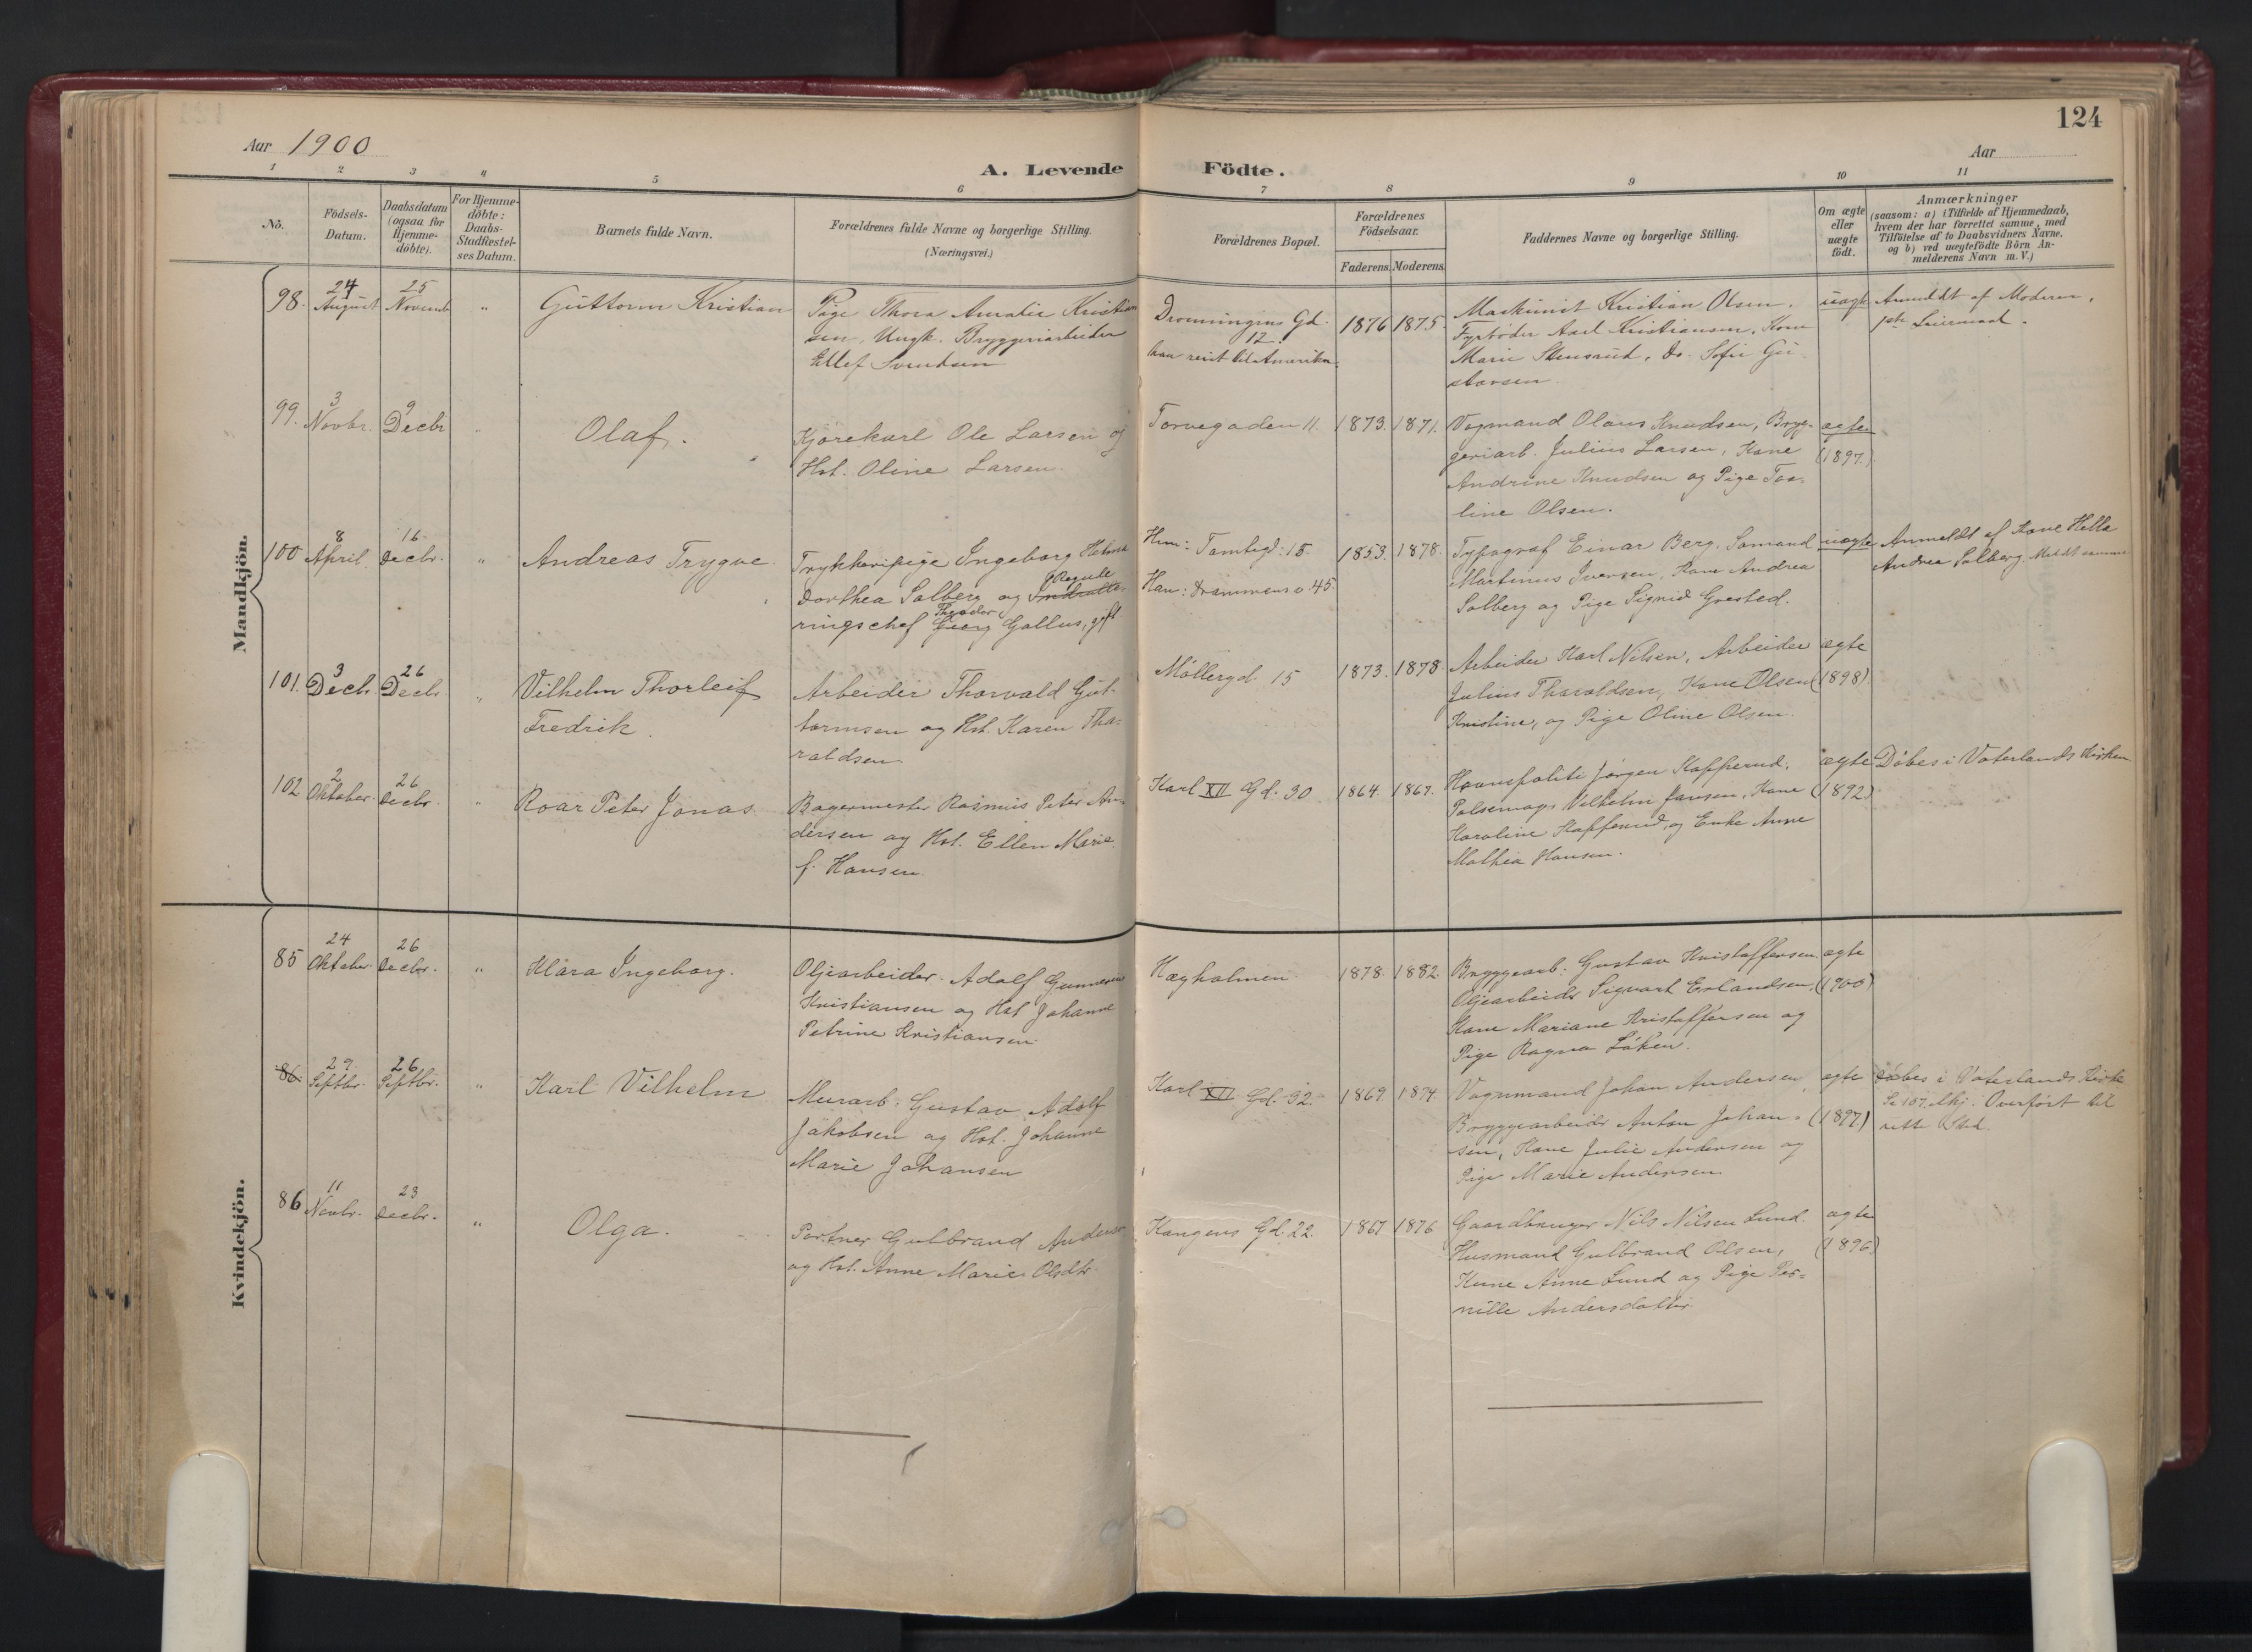 124
Aar 1900
Aar
A. Levende Födte.
1 2 3 4 5 6 7 8 9 10 11
Nö.
Födsels-
Datum.
Daabsdatum
(ogsaa for
Hjemme-
döbte).
For Hjemme-
döbte:
Daabs-
Stadfæstel-
ses Datum.
Barnets fulde Navn.
Forældrenes fulde Navne og borgerlige Stilling.
(Næringsvei.)
Forældrenes Bopæl.
Forældrenes
Födselsaar.
Faderens. Moderens.
Faddernes Navne og borgerlige Stilling.
Om ægte
eller
uægte
födt.
Anmærkninger
(saasom: a) i Tilfælde af Hjemmedaab,
hvem der har forrettet samme, med
Tilföielse af to Daabsvidners Navne.
og b) ved uegtefödte Börn An-
melderens Navn m. V.)
Mandkjön.
98.
24
August
25
Novemb
"
Guttorm Kristian
Pige Thora Amalie Kristian
sen, Ungk. Bryggeriarbeider
Ellef Svendsen
Dronningens Gd.
12.
han reist til Amerika.
1876
1875.
Maskinist Kristian Olsen.
Fyrböder Axel Kristiansen, Kone
Marie Stensrud, do. Sofie Gu-
stavsen
uægte
Anmeldt af Moderen,
1ste Leiermaal.
99.
3
Novbr.
9
Decbr
"
Olaf.
Kjörekarl Ole Larsen og
Hst. Oline Larsen.
Torvegaden 11.
1873.
1871.
Vognmand Olaus Knudsen, Bryg-
geriarb. Julius Larsen, Kone
Andrine Knudsen og Pige
line Olsen.
ægte
(1897.)
100
8
April
16
Decbr.
"
Andreas Trygve.
Trykkeripige Ingeborg
Dorthea Solberg og
ringschef Theodor Gallus, gift.
Hun: Tomtegd. 15.
Han: Drammensv 45.
1853.
1878.
Typograf Einar Berg, Sömand
Martinus Iversen, Kone Andrea
Solberg og Pige Sigrid Grested.
uægte
Anmeldt af Kone Hella
Andrea Solberg.
101.
3
Decbr.
26
Decbr.
"
Vilhelm Thorleif
Fredrik.
Arbeider Thorvald Gut-
tormsen og Hst. Karen Tha-
raldsen
Möllergd. 15
1873.
1878.
Arbeider Karl Nilsen, Arbeider
Julius Tharaldsen, Kone Olsen
Kristine, og Pige Oline Olsen.
ægte
(1898).
102
2
Oktober.
26
Decbr.
"
Roar Peter Jonas.
Bagermester Rasmus Peter An-
dersen og Hst. Ellen Marie
f. Hansen.
Karl XII Gd. 30
1864.
1867.
Havnepoliti Jörgen Kopperud,
Pölsemager Vilhelm Jansen, Kone
Karoline Kopperud, og Enke Anne
Mathea Hansen.
ægte
(1892)
Döbes i Vaterlands Kirken
Kvindekjön.
85
24
Oktober.
26
Decbr.
"
Klara Ingeborg.
Oljearbeider Adolf
Kristiansen og Hst Johanne
Petrine Kristiansen
Hægholmen
1878.
1882.
Bryggearb. Gustav Kristoffersen
Oljearbeider Sigvart Erlandsen,
Kone Mariane Kristoffersen og
Pige Ragna Löken.
ægte
(1900)
86.
29.
Septbr.
26
Septbr.
"
Karl Vilhelm
Murarb. Gustav Adolf
Jakobsen og Hst. Johanne
Marie Johansen
Karl XII Gd. 32.
1869.
1874.
Vognmand Johan Andersen,
Bryggearbeider Anton Johan-
sen, Kone Julie Andersen og
Pige Marie Andersen
ægte
(1897)
Döbes i Vaterlands Kirke
Se 107. Mkj. Overfört til
rette Sted.
86
11
Novbr.
23
Decbr.
"
Olga.
Portner Gulbrand Andersen
og Hst. Anne Marie Olsdtr.
Kongens Gd. 22.
1867
1876
Gaardbruger Nils Nilsen Lund
Husmand Gulbrand Olsen,
Kone Anne Lund og Pige Per-
nille Andersdatter
ægte
(1896.)